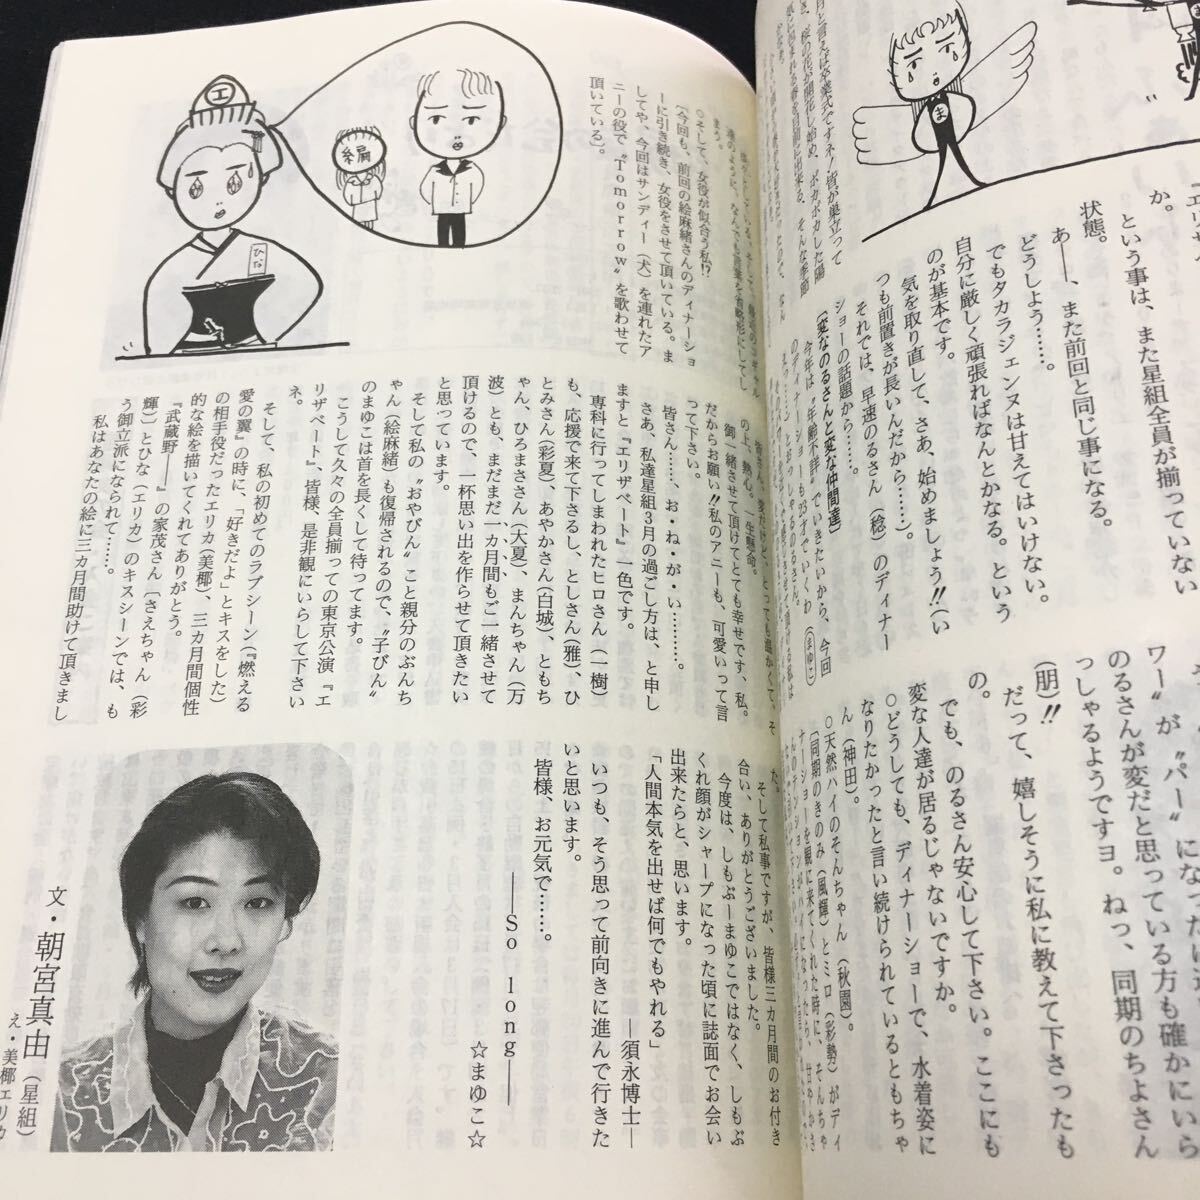 か。
という事は、また星組全員が揃っていない
状態。
あ――、また前回と同じ事になる。
どうしよう……。
でもタカラジェンヌは甘えてはいけない。
自分に厳しく頑張ればなんとかなる。という
のが基本です。
気を取り直して、さあ、始めましょう!!(い
つも前置きが長いんだから……)。
それでは、早速のるさん(稔)のディナー
ショーの話題から……。
〔変なのるさんと変な仲間達〕
今年は〝年齢不詳〟でいきたいから、今回
ワー〟が〝パー〟になっ
のるさんが変だと思っている方も確かにいら
っしゃるようですヨ。ねっ、同期のちよさん
(朋)!!
だって、嬉しそうに私に教えて下さったも
の。
でも、のるさん安心して下さい。ここにも
変な人達が居るじゃないですか。
○どうしても、ディナーショーで、水着姿に
なりたかったと言い続けられているともちゃ
ん(神田)。
○天然ハイのそんちゃん(秋園)。
〔同期のきのみ(風輝)とミロ(彩勢)がディ
ナーショーを観に来てくれた時に、そんちゃ
ま
ま
まう。
○そして、女役が似合う私!?
〔今回も、前回の絵麻緒さんのディナーショ
ーに引き続き、女役をさせて頂いている。ま
してや、今回はサンディー(犬)を連れたア
ニーの役で〝Tomorrow〟を歌わせて
頂いている〕。
エ
編
ひな
の上、熱心。一生懸命。
御一緒させて頂けてとても幸せです、私。
だからお願い!!私のアニーも、可愛いって言
って下さい。
皆さん……、お・ね・が・い………。
さあ、私達星組3月の過ごし方は、と申し
ますと『エリザベート』一色です。
専科に行ってしまわれたヒロさん(一樹)
も、応援で来て下さるし、としさん(雅)、ひ
とみさん(彩夏)、あやかさん(白城)、ともち
ゃん、ひろまささん(大夏)、まんちゃん(万
波)とも、まだまだ一カ月間もご一緒させて
頂けるので、一杯思い出を作らせて頂きたい
と思っています。
そして私の〝おやびん〟こと親分のぶんち
ゃん(絵麻緒)も復帰されるので、〝子びん〟
のまゆこは首を長くして待ってます。
こうして久々の全員揃っての東京公演『エ
リザベート』、皆様、是非観にいらして下さい
ネ。
そして、私の初めてのラブシーン(『燃える
愛の翼』の時に、「好きだよ」とキスをした)
の相手役だったエリカ(美椰)、三カ月間個性
的な絵を描いてくれてありがとう。
『武蔵野――』の家茂さん〔さえちゃん(彩
輝)〕とひな(エリカ)のキスシーンでは、も
う御立派になられて……。
私はあなたの絵に三カ月間助けて頂きまし
た。
そして私事ですが、皆様三カ月間のお付き
合い、ありがとうございました。
今度は、しもぶーまゆこではなく、しもぶ
くれ顔がシャープになった頃に誌面でお会い
出来たらと、思います。
「人間本気を出せば何でもやれる」
―須永博士―
いつも、そう思って前向きに進んで行きた
いと思います。
皆様、お元気で……。
――So long――
☆まゆこ☆
文・朝宮真由(星組)
え・美椰エリカ